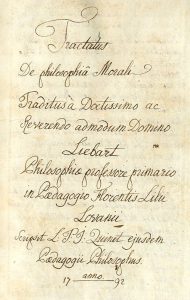 Tractatus
De philosophiâ Morali
Traditus à Doctissimo ac
Reverendo admodum Domino
Liebart
Philosophiæ professore primario
in Pædagogio Florentis Lilii
Lovanii
Scripsit L P J Dumet ejusdem
Pædagogii Philosophus
17 anno 92